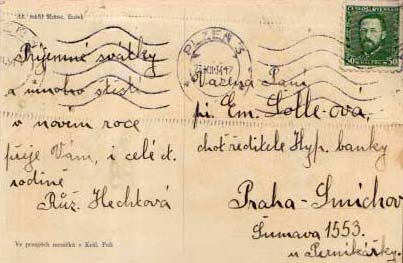 Ak. malíř
PLZEŇ 3
ČESKOSLOVENSKO
50
Příjemné svátky
a mnoho štěstí
v novém roce
přeje Vám, i celé ct.
rodině
Růž. Hechtová
Vážená Paní
pí. Em. Lolle-ová,
choť ředitele Hyp. banky
Praha-Smíchov
Šumava 1553.
u Perníkářky.
Ve prospěch
v Král. Poli